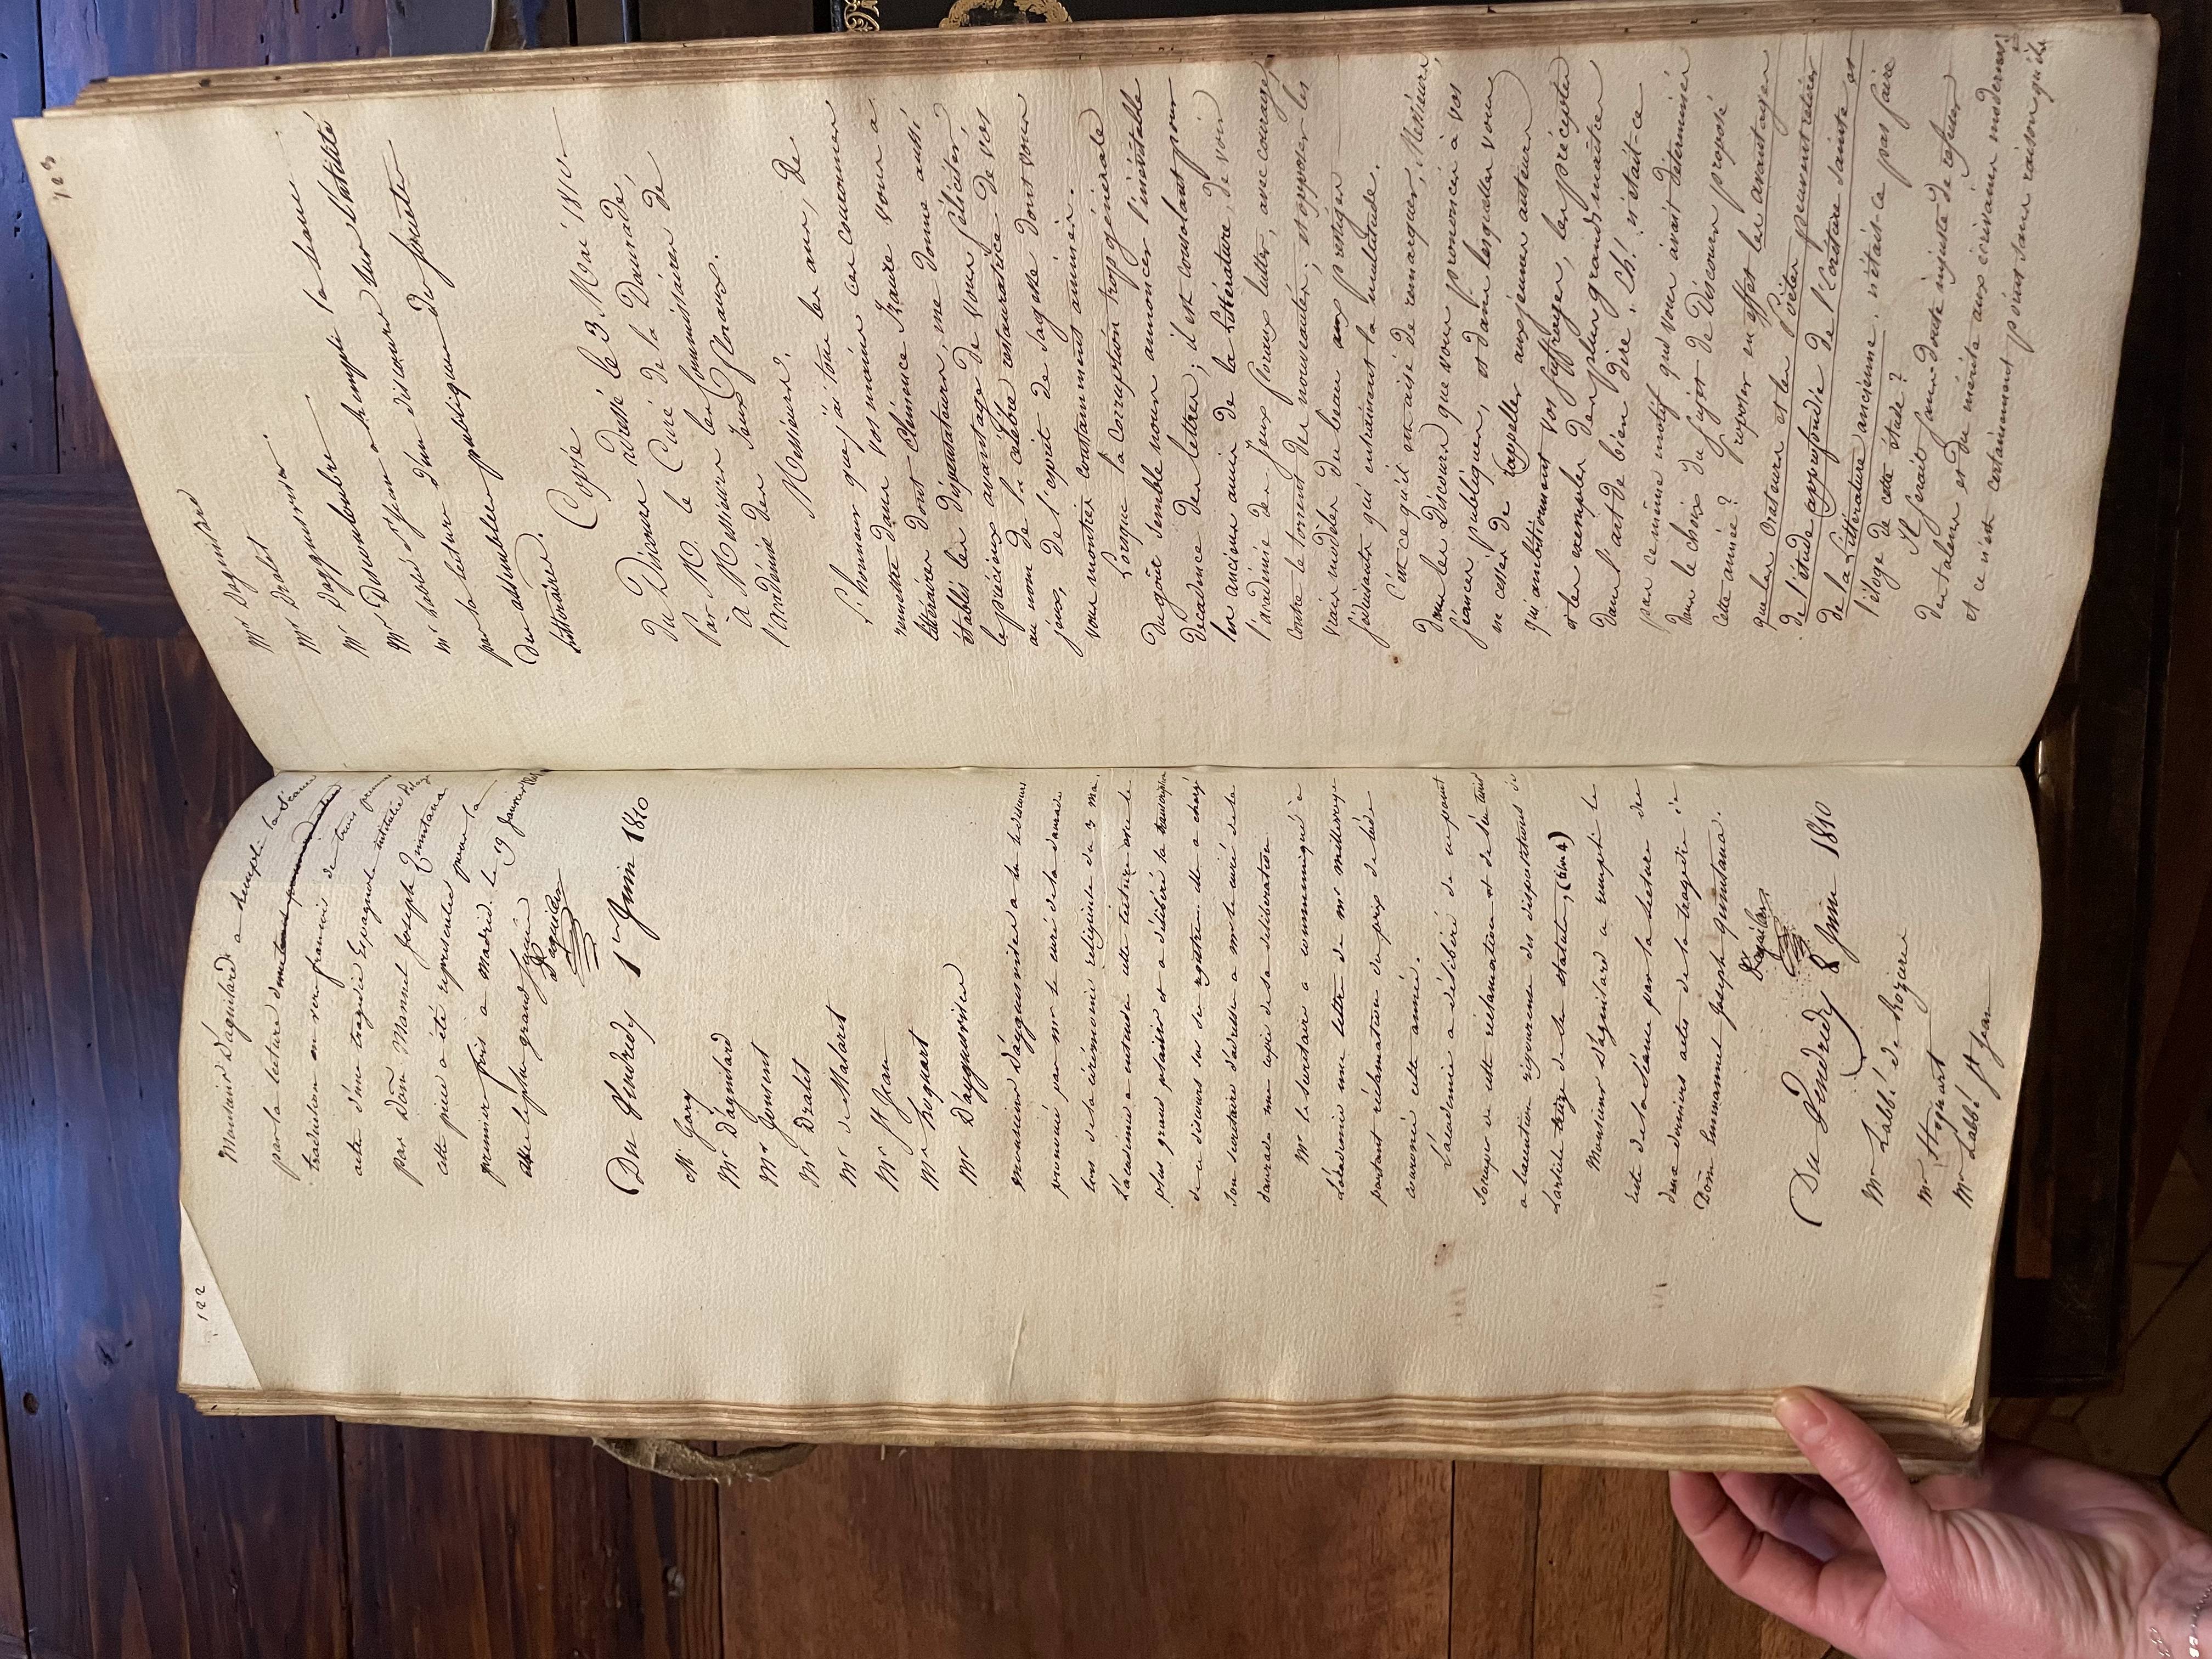 122
Monsieur D'aguilard a rempli la Séance
par la lecture
traduction en vers français de trois premiers
actes d'une tragédie Espagnole intitulée Pelage
par Dom Manuel Joseph Quintana
cette piece a été représentée pour la
premiere fois a Madrid le 19 Janvier
D'aguilar
Du Vendredy 1er Juin 1810
Mr Gary
Mr D'aguilard
Mr Jamme
Mr Dralet
Mr de Malaret
Mr St Jean
Mr hoquart
Mr D'ayguesvives
Monsieur D'ayguesvives a lu le discours
prononcé par Mr le curé de la daurade
lors de la cérémonie religieuse du 3 mai.
L'académie a entendu cette lecture avec le
plus grand plaisir et a délibéré la transcription
de ce discours sur ses registres. elle a chargé
son secrétaire d'adresser a mr le curé de la
daurade une copie de sa délibération.
Mr le secrétaire a communiqué à
L'académie une lettre de mr millevoye
portant réclamation du prix de
couronné cette année.
L'académie a délibéré de ne point
s'occuper de cette réclamation et de s'en tenir
a l'exécution rigoureuse des dispositions de
L'article treize de ses statuts, (bis 4)
Monsieur D'aguilard a rempli le
reste de la séance par la lecture des
deux derniers actes de la tragedie de
Dom Emmanuel Joseph Quintana.
D'aguilar
Du Vendredy 8 Juin 1810
Mr Labbé de Rozieres
Mr Hoquart
Mr Labbé St Jean
123
Mr Daguilard
Mr Dralet
Mr Dayguesvives
Mr Desmoulombre a rempli la séance
Mr Labbé St Jean d'un discours sur l'utilité
par la lecture d'un discours des sociétés
Des assemblées publiques
littéraires.
Copie
Du Discours adressé le 3 Mai 1810
Par M. le Curé de la Daurade,
à Messieurs les Commissaires de
l'académie des Jeux Floraux.
Messieurs.
L'honneur que j'ai tous les ans, de
remettre dans vos mains ces couronnes
littéraires dont Clémence Isaure vous a
établis les dispensateurs, me donne aussi
le précieux avantage de vous féliciter
au nom de la célèbre restauratrice de vos
jeux, de l'esprit de sagesse dont vous
vous montrez constamment animés.
Lorsque la corruption trop générale
du goût semble nous annoncer l'inévitable
décadence des lettres; il est consolant pour
les anciens amis de la Littérature, de voir
l'académie des Jeux floraux lutter, avec courage,
contre le torrent des nouveautés, et opposer les
vrais modèles du beau aux prestiges
séduisants qui entrainent la multitude.
C'est ce qu'il est aisé de remarquer, Messieurs,
dans les Discours que vous prononcez à vos
séances publiques, et dans lesquelles vous
ne cessez de rappeller aux jeunes auteurs
qui ambitionnent vos suffrages, les préceptes
et les exemples des plus grands maîtres
dans l'art de bien dire. Eh! n'était-ce
pas ce même motif qui vous avait déterminés
dans le choix du sujet de Discours proposé
cette année? Proposer en effet les avantages
que les Orateurs et les Poëtes peuvent retirer
de l'étude approfondie de l'Ecriture sainte et
de la Littérature ancienne, n'était-ce pas faire
l'éloge de cette étude?
Il serait sans doute injuste de refuser
des talens et du mérite aux écrivains modernes;
et ce n'est certainement point sans raison qu'ils